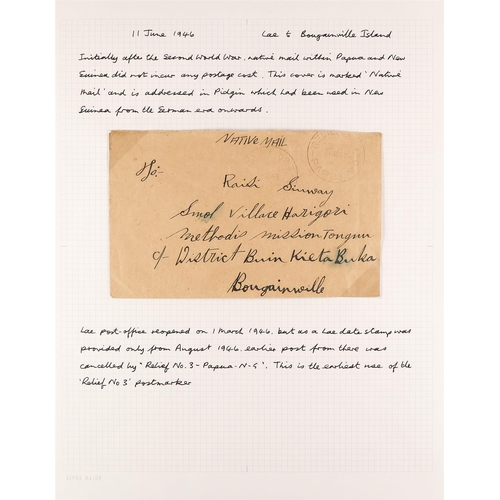 11 June 1946 Lae to Bougainville Island
Initially after the Second World War, native mail within Papua and New
Guinea did not incur any postage cost. This cover is marked 'Native
Mail' and is addressed in Pidgin which had been used in New
Guinea from the German era onwards.
NATIVE MAIL
To:-
Raisi Sinway
Smol Village Harigori
Methodis mission Tongnu
c/ District Buin Kieta Buka
Bougainville
Lae post-office reopened on 1 March 1946, but as a Lae date stamp was
provided only from August 1946, earlier post from there was
cancelled by 'Relief No. 3 - Papua - N - G'. This is the earliest use of the
'Relief No 3' postmarker